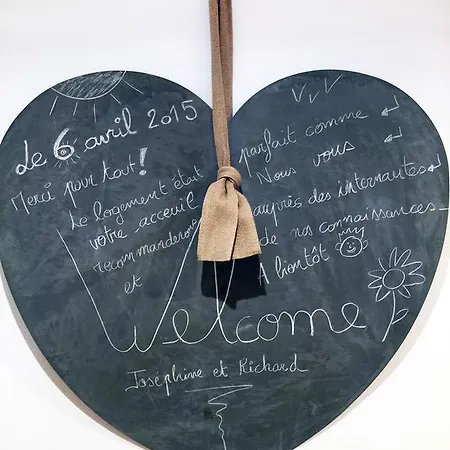 de 6 avril 2015
Merci pour tout!
Le logement était parfait comme
votre acceuil Nous vous
recommanderons auprès des internautes
et de nos connaissances
A bientôt
Welcome
Joséphine et Richard